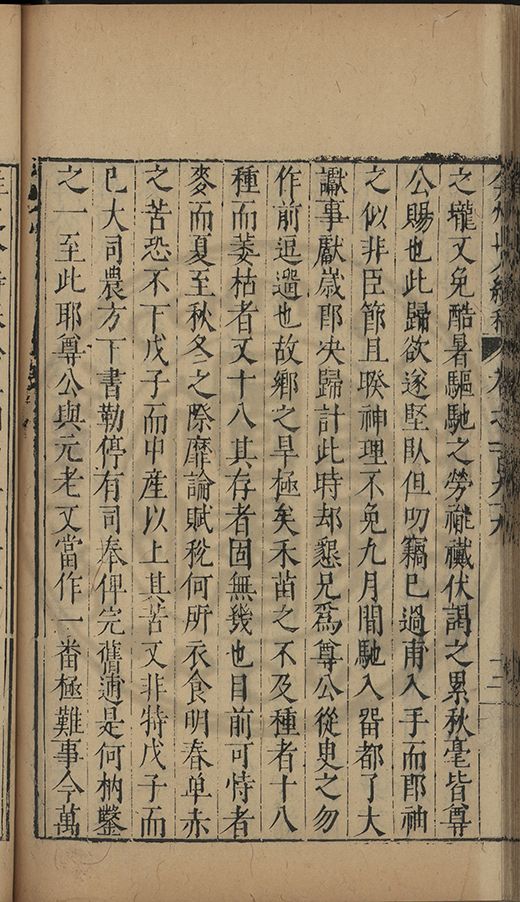 弇州山人續稿 卷之一百九九 十二
之壠又免酷暑驅馳之勞褦襶伏謁之累秋毫皆尊
公賜也此歸欲遂堅臥但叨竊已過甫入手而即袖
之似非臣節且睽神理不免九月間馳入留都了大
讞事獻歲即决歸計此時却懇兄爲尊公從臾之勿
作前逗遛也故鄉之旱極矣禾苗之不及種者十八
種而萎枯者又十八其存者固無幾也目前可恃者
麥而夏至秋冬之際靡論賦稅何所衣食明春单赤
之苦恐不下戊子而中産以上其苦又非特戊子而
已大司農方下書勒停有司奉俾完舊逋是何枘鑿
之一至此耶尊公與元老又當作一番極難事今萬